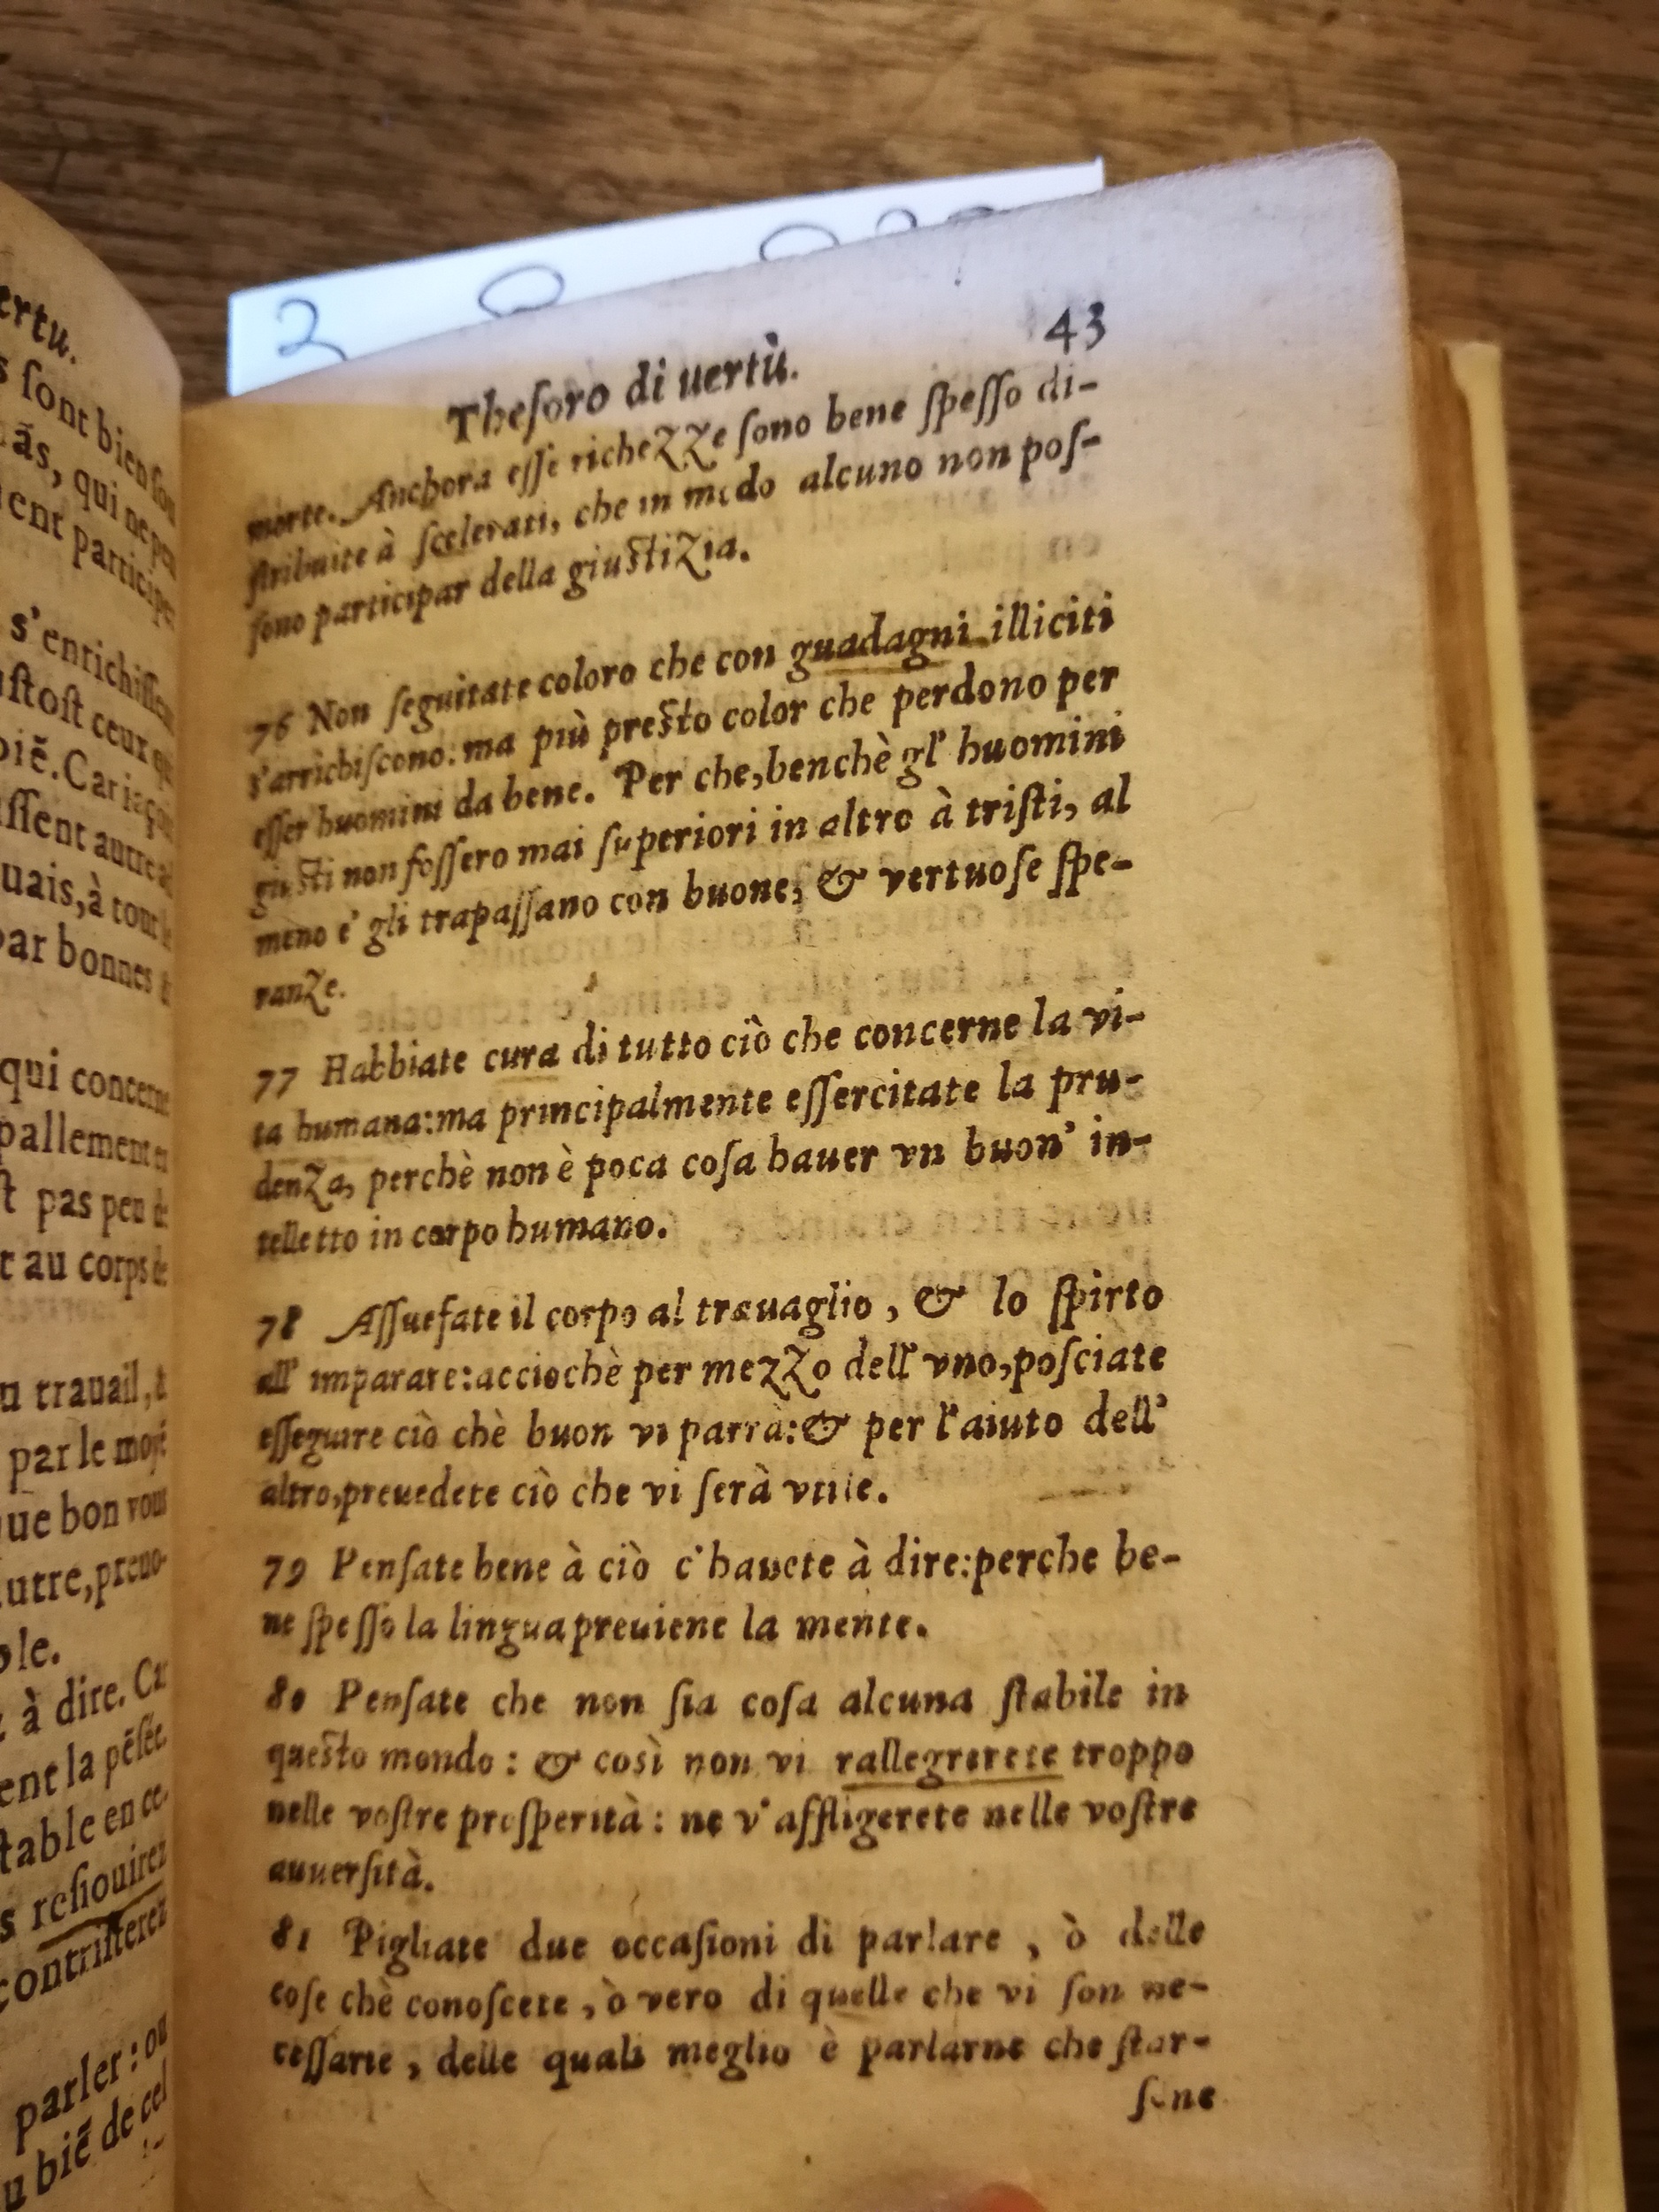 ertu.
s ſont bien ſou
ãs, qui ne peu
ent participer
s'enrichiſſent
ſtoſt ceux qu
biẽ. Car iaçoit
ſſent autre
uais, à tout le
par bonnes &
qui concerne
pallement
t pas peu de
t au corps de
u trauail, &
par le moyẽ
ue bon vous
utre, preuo-
ble.
à dire. Car
ent la pẽſée.
table en ce-
s reſiouirez
contriſterez
parler: ou
u biẽ de cel
43
Theſoro di uertù.
morte. Anchora eſſe richezze ſono bene ſpeſſo di-
ſtribuite à ſcelerati, che in modo alcuno non poſ-
ſono participar della giuſtizia.
76 Non ſeguitate coloro che con guadagni illiciti
s'arrichiſcono: ma più preſto color che perdono per
eſſer huomini da bene. Per che, benchè gl' huomini
giuſti non foſſero mai ſuperiori in altro à triſti, al
meno e' gli trapaſſano con buone, & vertuoſe ſpe-
ranze.
77 Habbiate cura di tutto ciò che concerne la vi-
ta humana: ma principalmente eſſercitate la pru-
denza, perchè non è poca coſa hauer vn buon' in-
telletto in corpo humano.
78 Aſſuefate il corpo al trauaglio, & lo ſpirto
all' imparare: acciochè per mezzo dell' vno, poſciate
eſſeguire ciò chè buon vi parrà: & per l'aiuto dell'
altro, preuedete ciò che vi ſerà vtile.
79 Penſate bene à ciò c'hauete à dire: perche be-
ne ſpeſſo la lingua preuiene la mente.
80 Penſate che non ſia coſa alcuna ſtabile in
queſto mondo: & così non vi rallegrerete troppo
nelle voſtre proſperità: ne v'affligerete nelle voſtre
auuerſità.
81 Pigliate due occaſioni di parlare, ò delle
coſe chè conoſcete, ò vero di quelle che vi ſon ne-
ceſſarie, delle quali meglio è parlarne che ſtar-
ſene